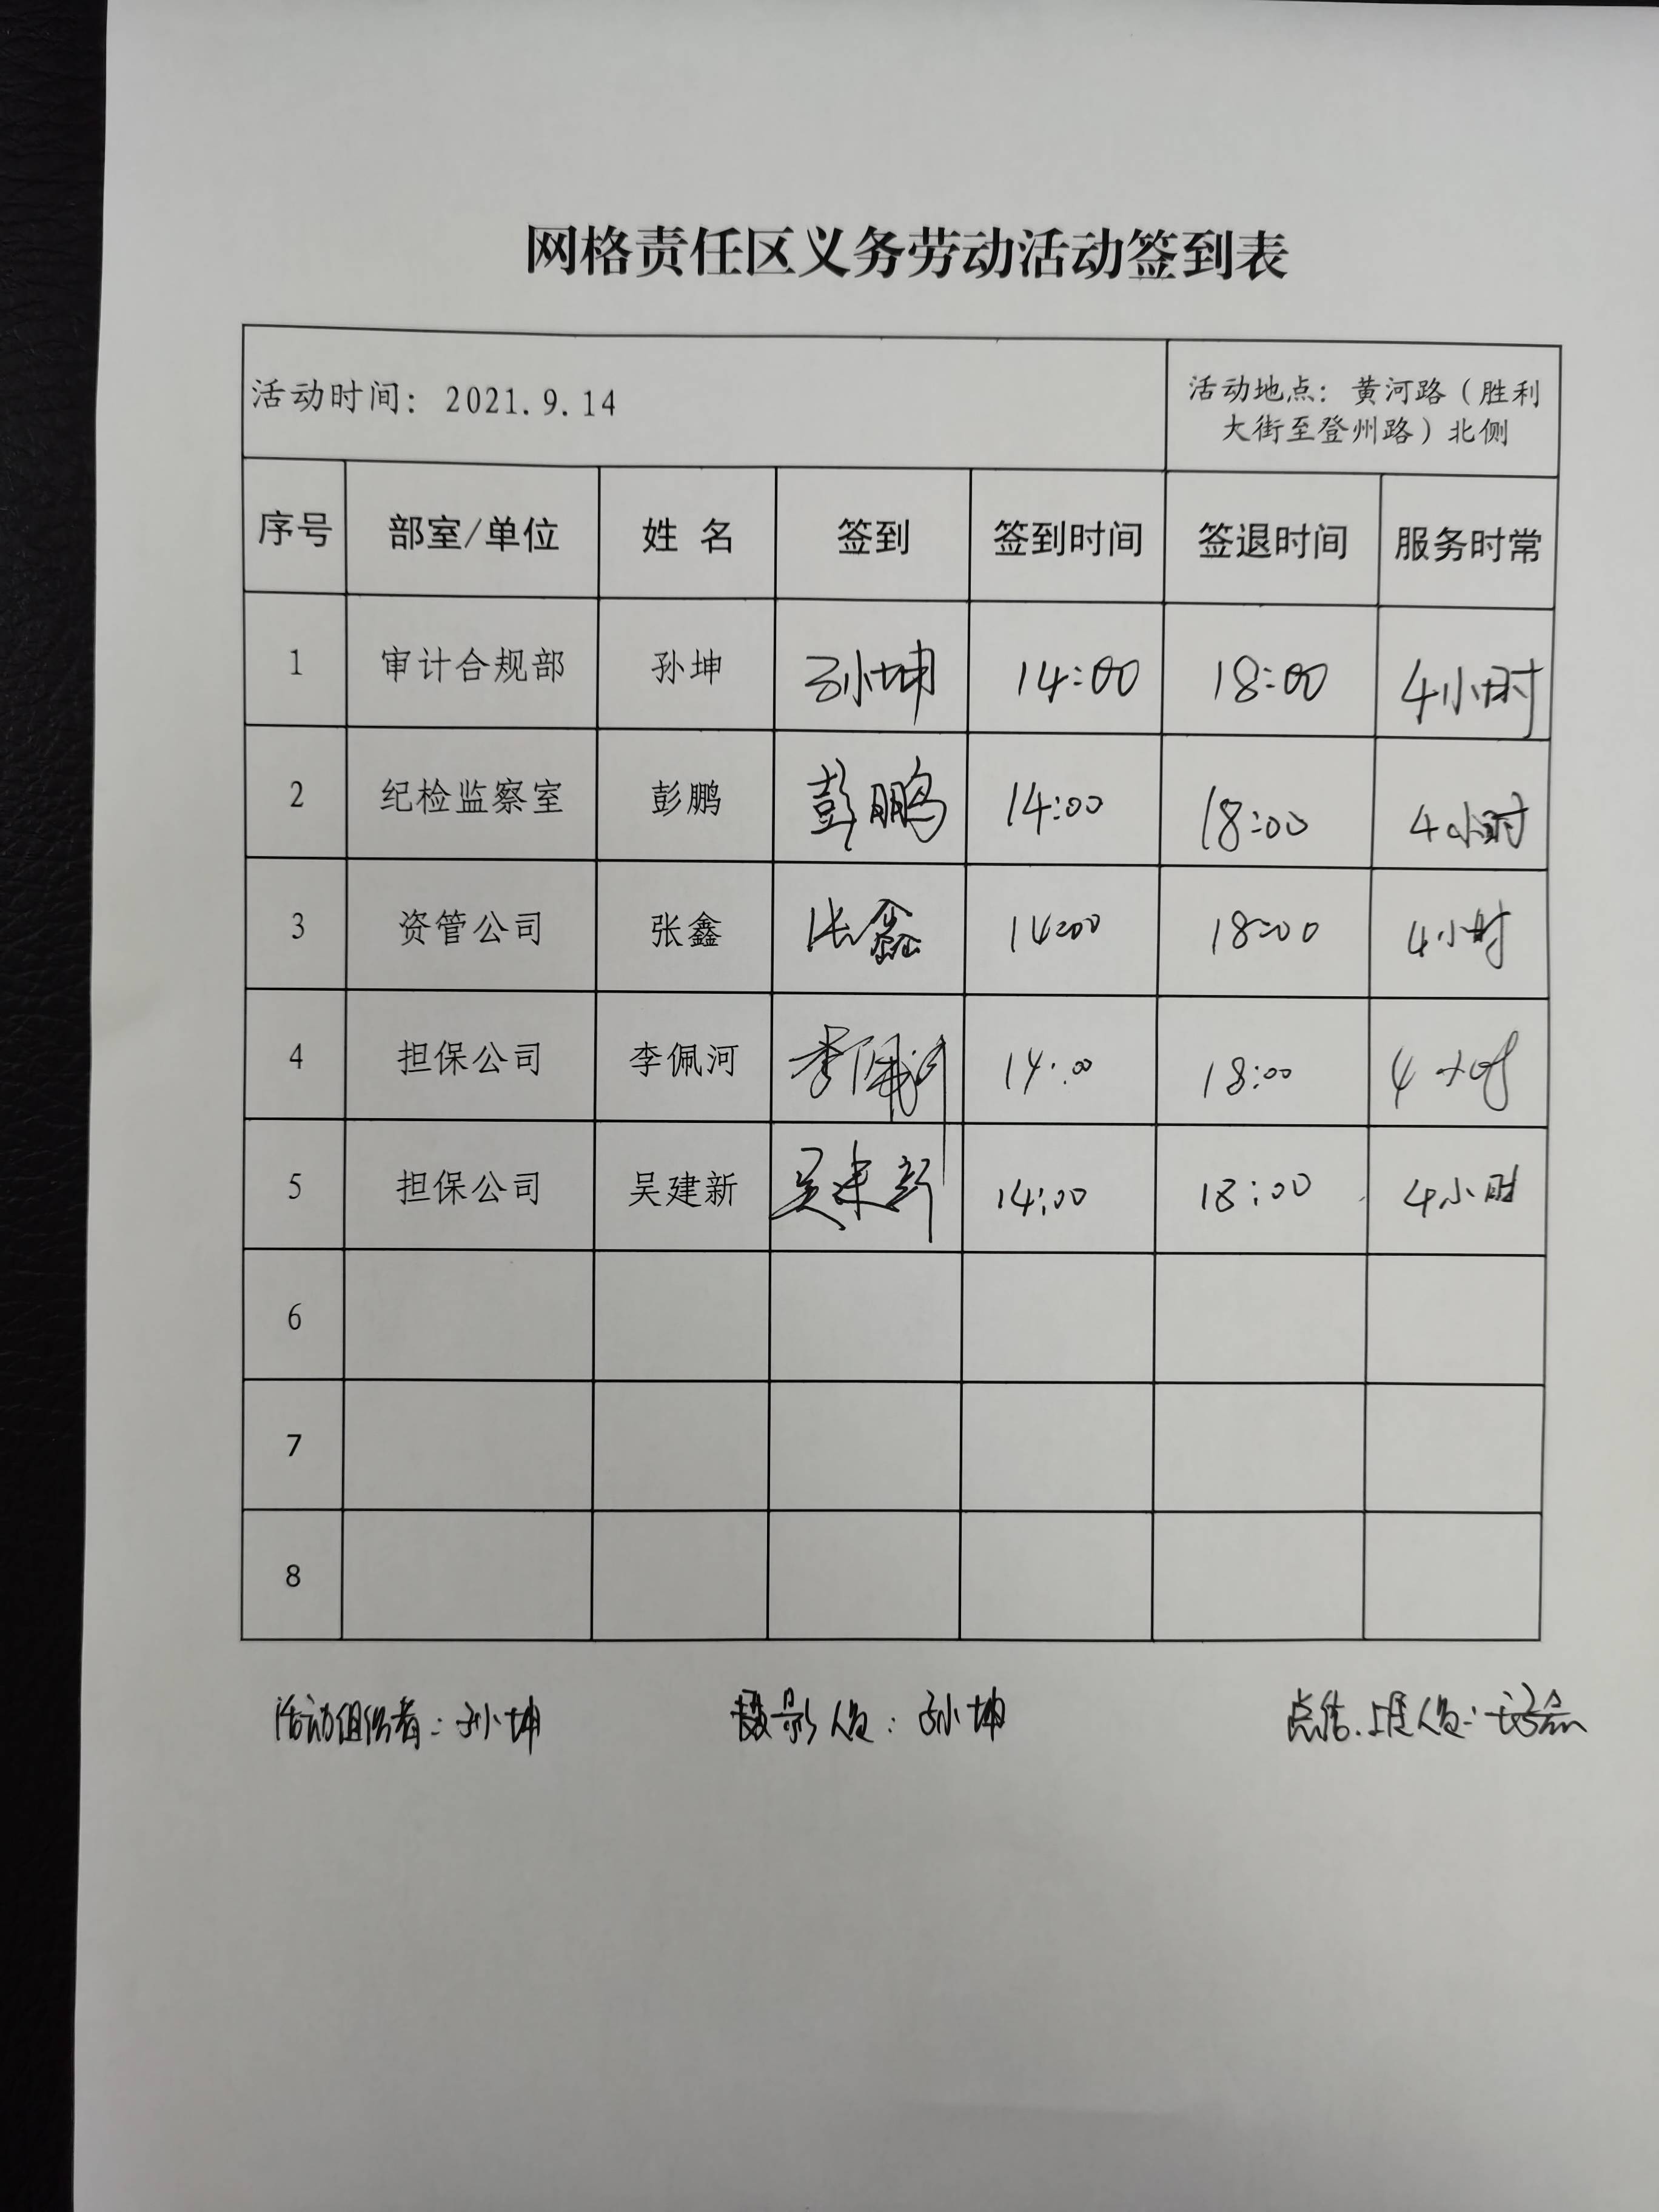 网格责任区义务劳动活动签到表
活动时间：2021.9.14
活动地点：黄河路（胜利
大街至登州路）北侧
序号 部室/单位 姓 名 签到 签到时间 签退时间 服务时常
1 审计合规部 孙坤 孙坤 14:00 18:00 4小时
2 纪检监察室 彭鹏 彭鹏 14:00 18:00 4小时
3 资管公司 张鑫 张鑫 14:00 18:00 4小时
4 担保公司 李佩河 李佩河 14:00 18:00 4小时
5 担保公司 吴建新 吴建新 14:00 18:00 4小时
6
7
8
活动组织者：孙坤 摄影人员：孙坤 人员：